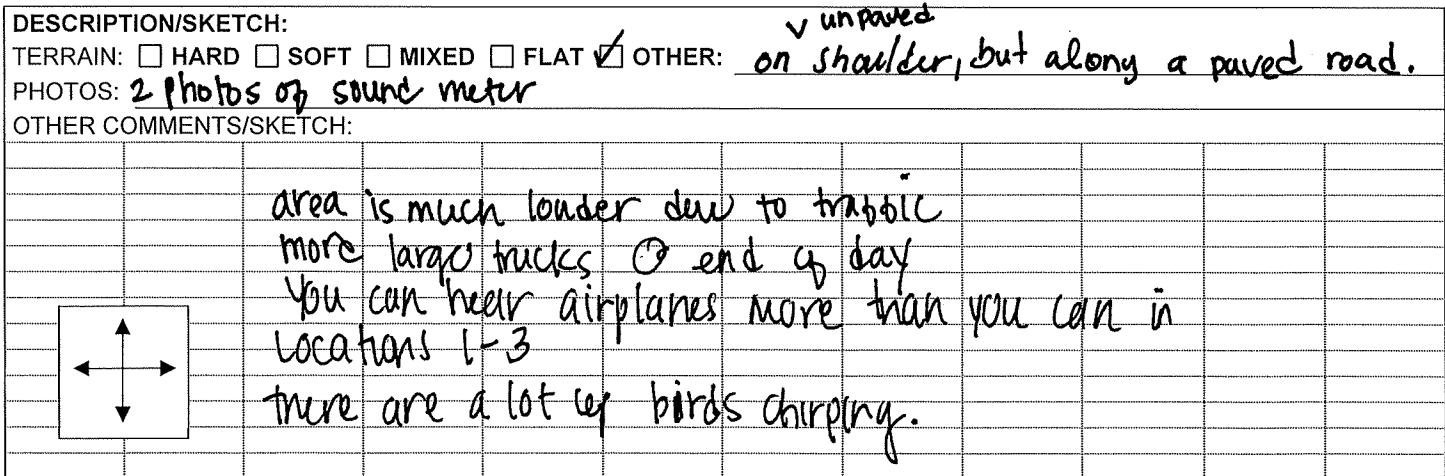 DESCRIPTION/SKETCH:
unpaved
TERRAIN: ☐ HARD ☐ SOFT ☐ MIXED ☐ FLAT ☑ OTHER: on shoulder, but along a paved road.
PHOTOS: 2 photos of sound meter
OTHER COMMENTS/SKETCH:
area is much louder due to traffic
more large trucks @ end of day
You can hear airplanes more than you can in
Locations 1-3
there are a lot of birds chirping.